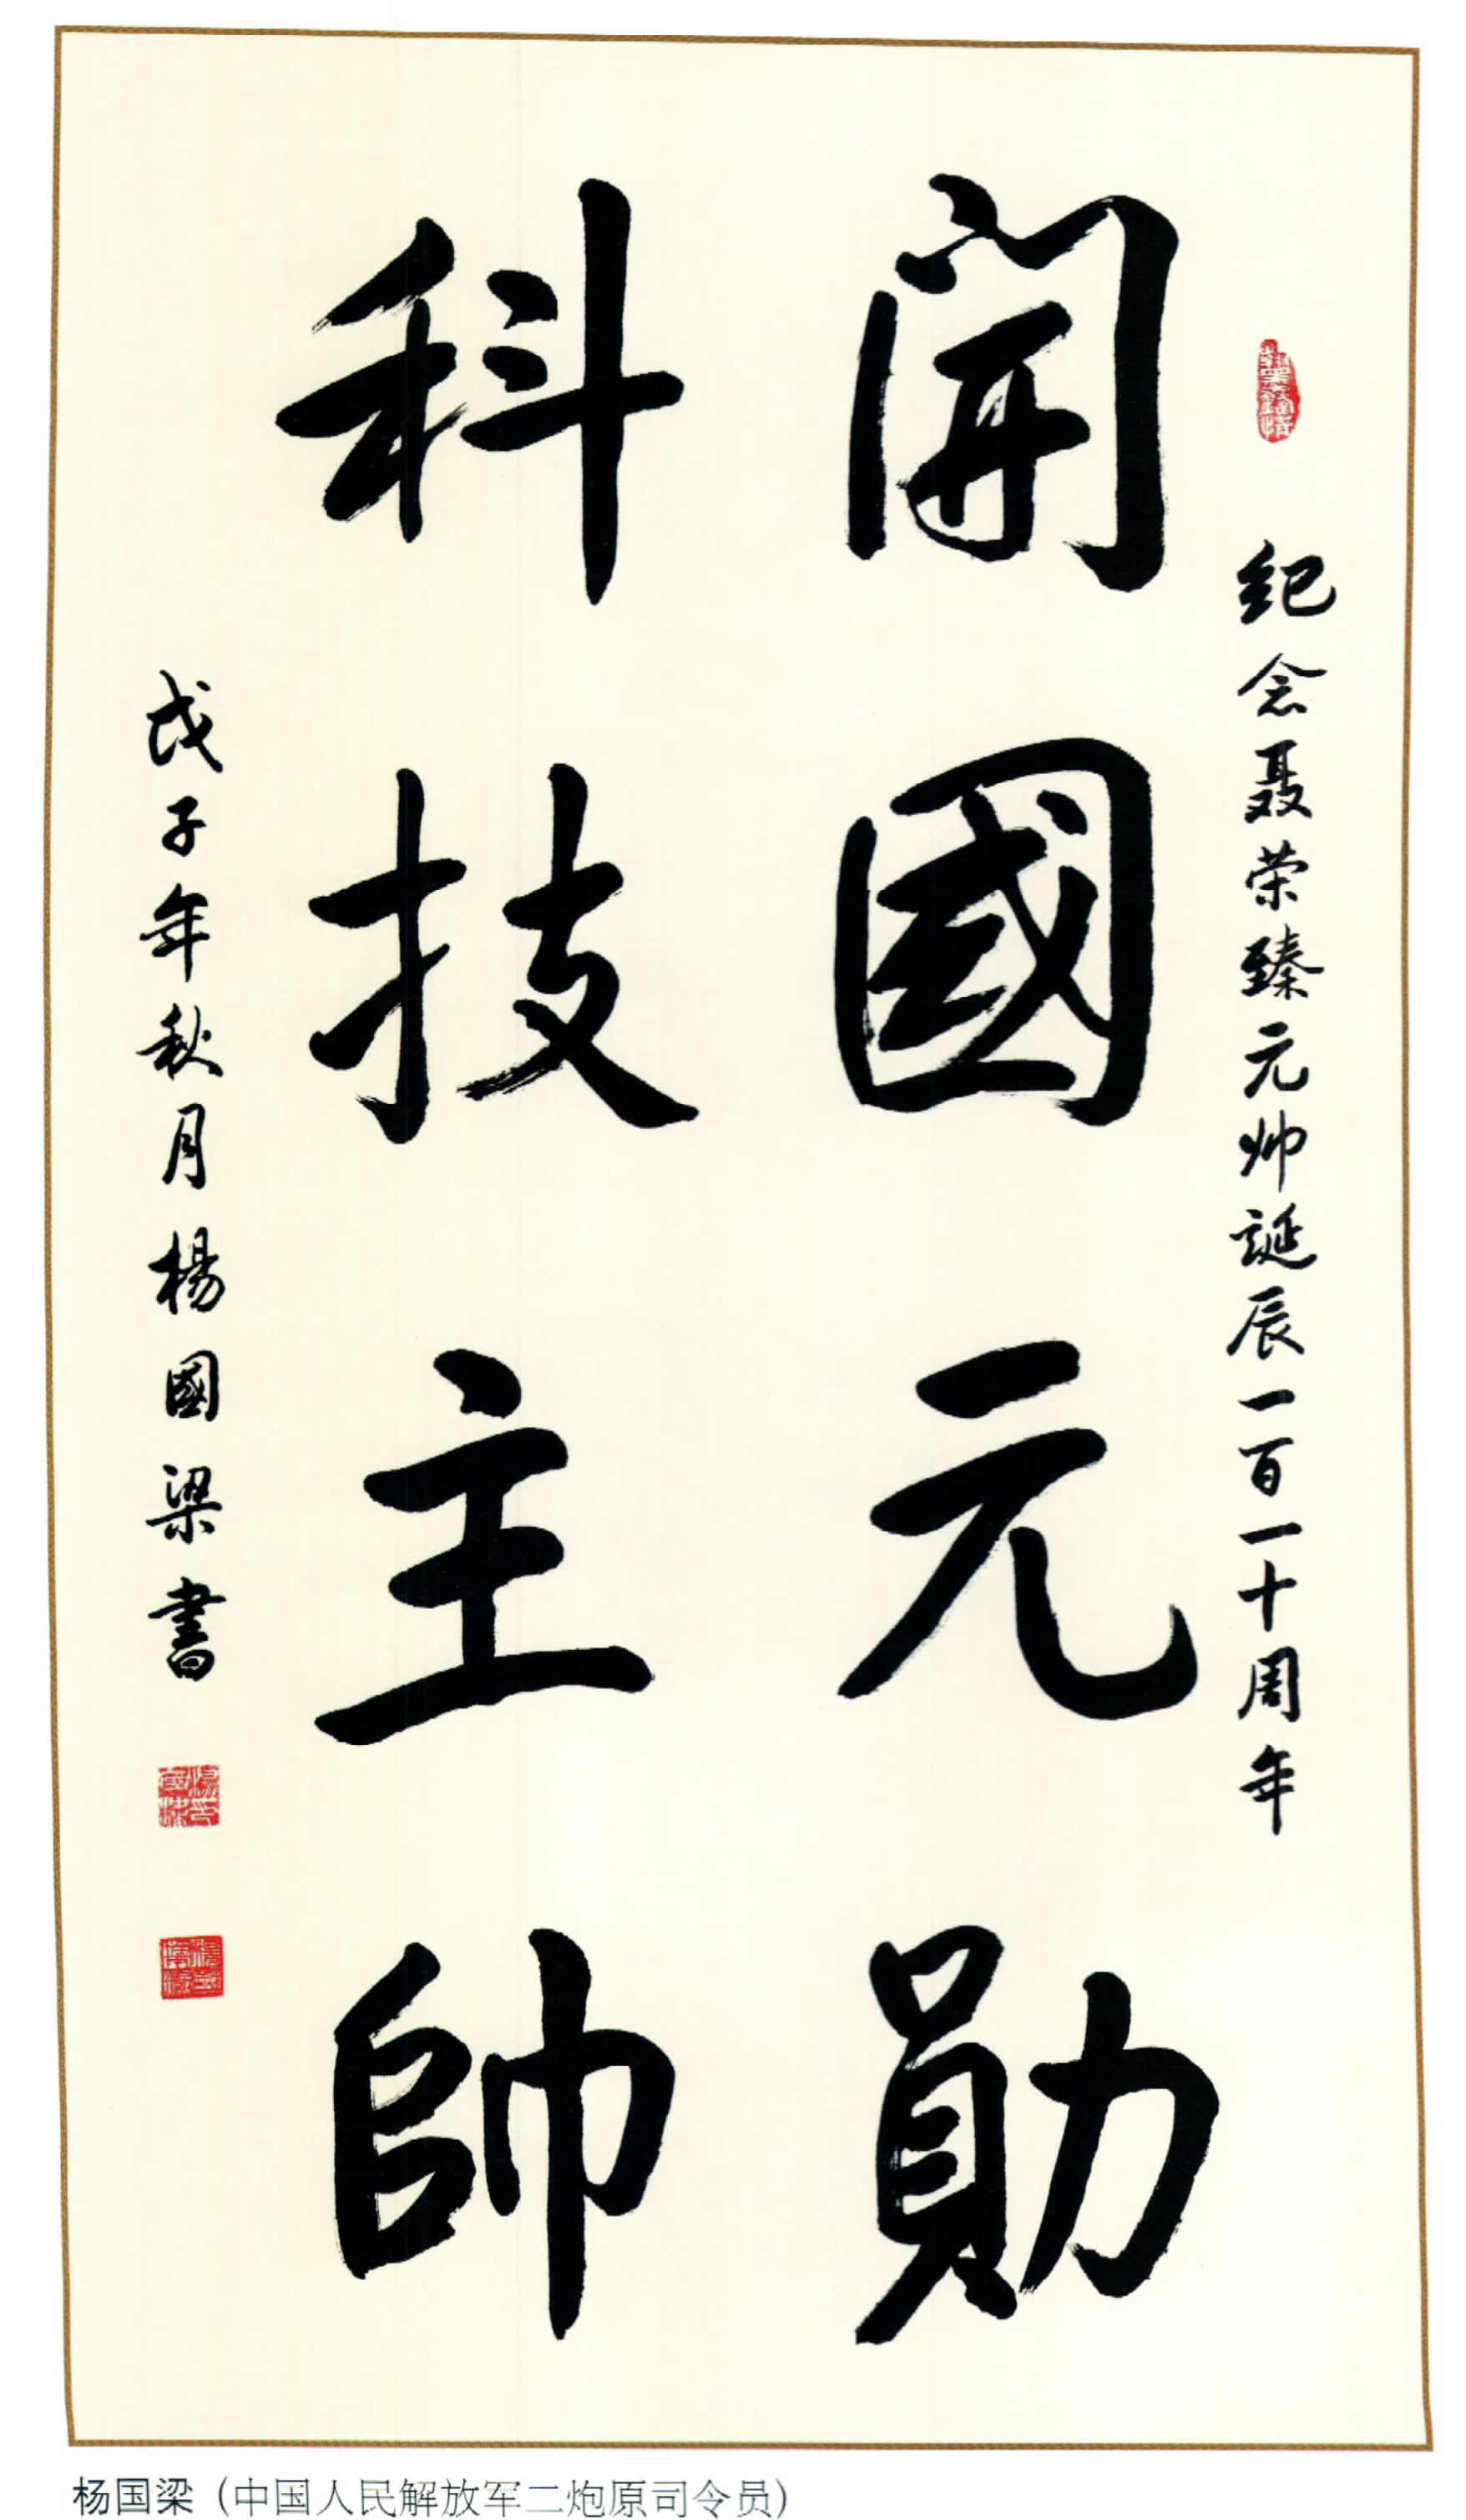 纪念聂荣臻元帅誕辰一百一十周年
開國元勛
科技主帥
戊子年秋月楊國梁書
杨国梁（中国人民解放军二炮原司令员）